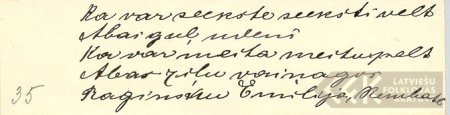 Ka var seekste seeksti velt
Abai guļ uleni
Ka var meita meitu pelt
Abas zilu vainagos
35 Raginsku Emilija, Rembatē
LATVIEŠU FOLKLORAS KRĀTUVE